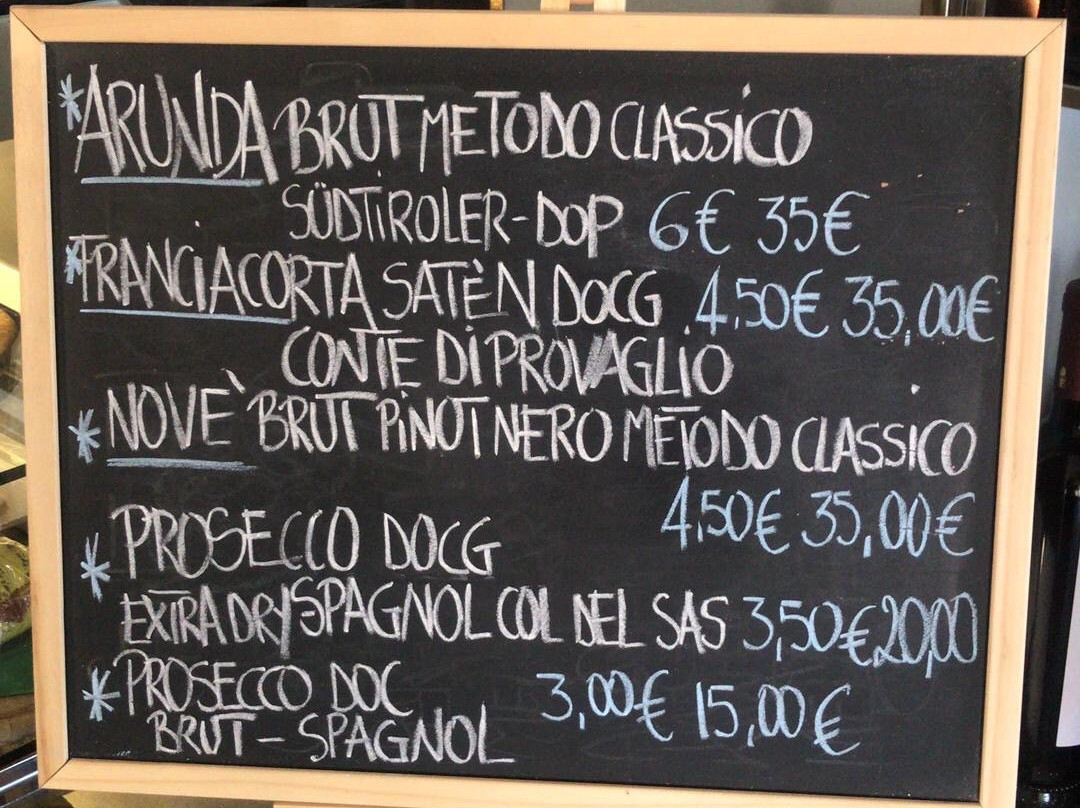 * ARUNDA BRUT METODO CLASSICO
SÜDTIROLER-DOP 6€ 35€
* FRANCIACORTA SATÈN DOCG 4,50€ 35,00€
CONTE DI PROVAGLIO
* NOVE` BRUT PINOT NERO METODO CLASSICO
4,50€ 35,00€
* PROSECCO DOCG
EXTRA DRY SPAGNOL COL DEL SAS 3,50€ 20,00
* PROSECCO DOC 3,00€ 15,00€
BRUT - SPAGNOL